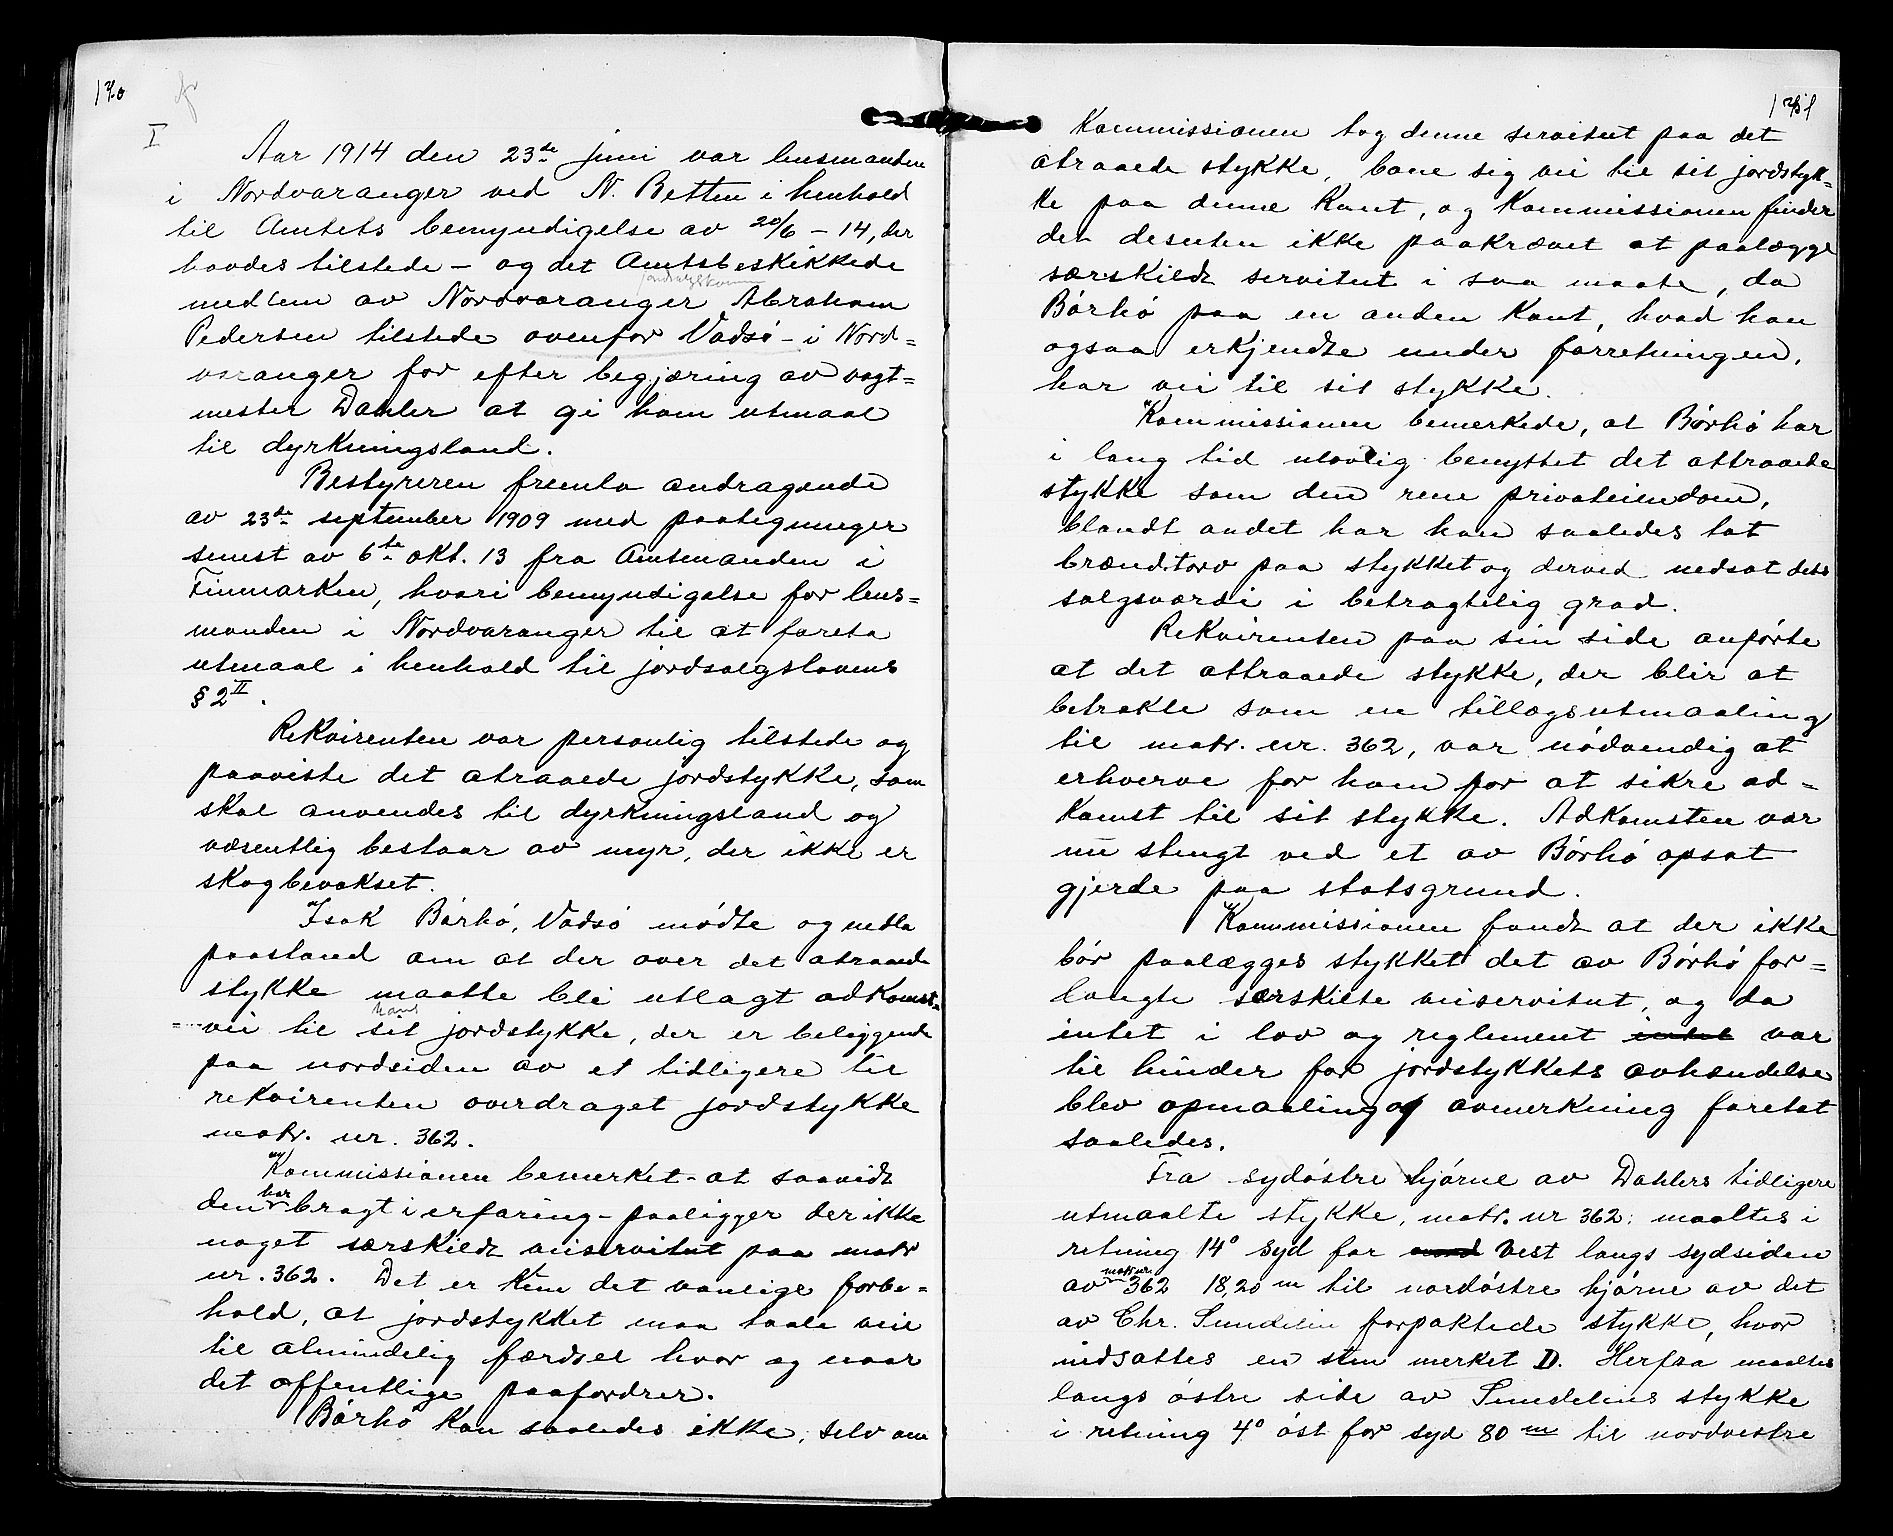 170
I
Aar 1914 den 23de juni var lensmanden
i Nordvaranger ved N. Betten i henhold
til Amtets bemyndigelse av 20/6 - 14, der
havdes tilstede - og det Amtsbeskikkede
medlem av Nordvaranger jordsalgskom Abraham
Pedersen tilstede ovenfor Vadsö - i Nord=
varanger for efter begjæring av vagt=
mester Dahler at gi ham utmaal
til dyrkningsland.
Bestyreren fremla andragende
av 23de september 1909 med paategninger
senest av 6te okt. 13 fra Amtmanden i
Finmarken, hvori bemyndigelse for lens=
manden i Nordvaranger til at foreta
utmaal i henhold til jordsalgslovens
§ 2 II.
Rekvirenten var personlig tilstede og
paaviste det atraaede jordstykke, som
skal anvendes til dyrkningsland og
væsentlig bestaar av myr, der ikke er
skogbevokset.
Isak Børhö, Vadsö mødte og nedla
paastand om at der over det atraaede
stykke maatte bli utlagt adkomst=
vei til sit hans jordstykke, der er beliggende
paa nordsiden av et tidligere til
rekvirenten overdraget jordstykke
matr. nr. 362.
Kommissionen bemerket - at saavidt
den har bragt i erfaring - paaligger der ikke
noget særskildt veiservitut paa matr
nr. 362. Det er kun det vanlige forbe=
hold, at jordstykket maa taale veie
til almindelig færdsel hvor og naar
det offentlige paafordrer.
Børhö kan saaledes ikke, selv om
171
Kommissionen tog denne servitut paa det
atraaede stykke, bane sig vei til sit jordstyk=
ke paa denne kant, og Kommissionen finder
det desuten ikke paakrævet at paalægge
særskildt servitut i saa maate, da
Børhö paa en anden kant, hvad han
ogsaa erkjendte under forretningen,
har vei til sit stykke.
Kommissionen bemerkede, at Børhö har
i lang tid ulovlig benyttet det attraaede
stykke som den rene privateiendom,
blandt andet har han saaledes tat
brændtorv paa stykket og derved nedsat dets
salgsværdi i betragtelig grad.
Rekvirenten paa sin side anførte
at det attraaede stykke, der blir at
betrakte som en tillægsutmaaling
til matr. nr. 362, var nödvendig at
erhverve for ham for at sikre ad=
komst til sit stykke. Adkomsten var
nu stengt ved et av Børhö opsat
gjerde paa statsgrund.
Kommissionen fandt at der ikke
bør paalægges stykket det av Børhö for=
langte særskilte veiservitut, og da
intet i lov og reglement intet var
til hinder for jordstykkets avhændelse
blev opmaaling og avmerkning foretat
saaledes.
Fra sydöstre hjørne av Dahlers tidligere
utmaalte stykke, matr. nr 362: maaltes i
retning 14° syd for nord vest langs sydsiden
av matr nr. 362 18,20 m til nordöstre hjørne av det
av Chr. Sundelin forpaktede stykke, hvor
nedsattes en sten merket D. Herfra maaltes
langs östre side av Sundelins stykke
i retning 4° öst for syd 80 m til nordvestre